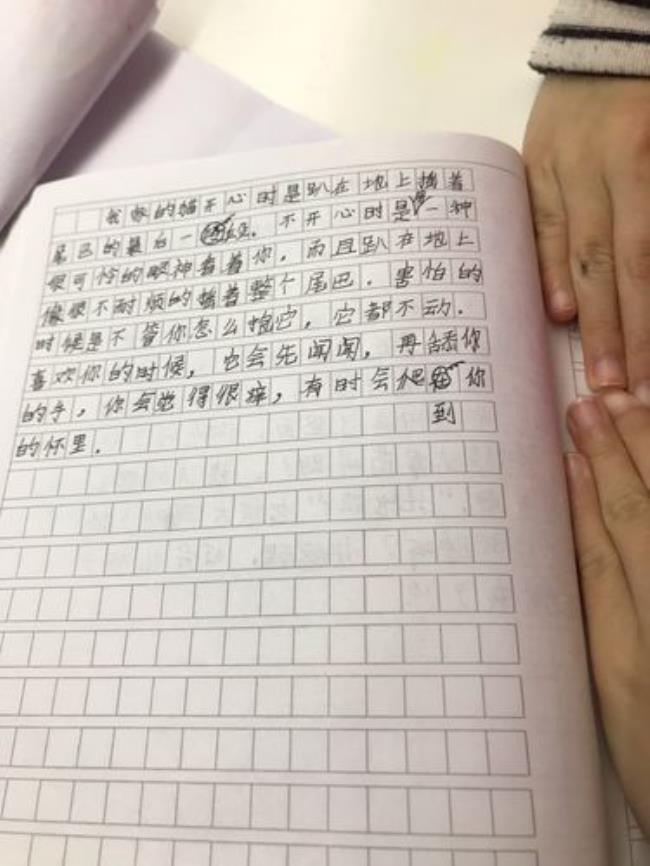 我家的猫开心时是趴在地上摇着
尾巴的最后一段。不开心时是用一种
很可怜的眼神看着你，而且趴在地上
像很不耐烦的摇着整个尾巴．害怕的
时候是不管你怎么抱它，它都不动．
喜欢你的时候，也会先闻闻，再舔你
的手，你会觉得很痒，有时会爬到你
的怀里．